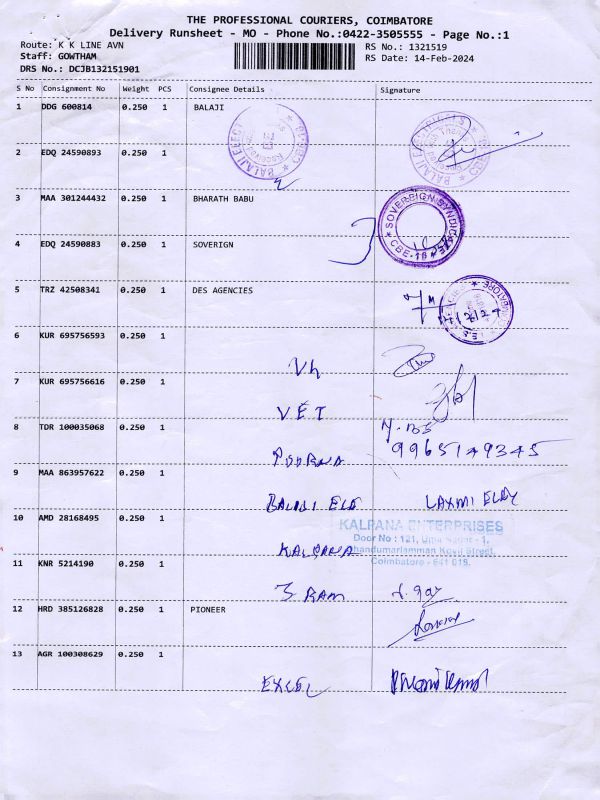 THE PROFESSIONAL COURIERS, COIMBATORE
Delivery Runsheet - MO - Phone No.:0422-3505555 - Page No.:1
Route: K K LINE AVN
RS No.: 1321519
Staff: GOWTHAM
RS Date: 14-Feb-2024
DRS No.: DCJB132151901
S No Consignment No Weight PCS Consignee Details Signature
1 DDG 600814 0.250 1 BALAJI
2 EDQ 24590893 0.250 1
3 MAA 301244432 0.250 1 BHARATH BABU
SOVEREIGN SYNDICATE
CBE-18
4 EDQ 24590883 0.250 1 SOVERIGN
5 TRZ 42508341 0.250 1 DES AGENCIES
6 KUR 695756593 0.250 1
Vh
7 KUR 695756616 0.250 1
VET
8 TDR 100035068 0.250 1
9965149345
POORNA
9 MAA 863957622 0.250 1
BALAJI ELE
10 AMD 28168495 0.250 1
KALPANA ENTERPRISES
Door No : 121,
Street,
Coimbatore - 641 019.
KALPANA
11 KNR 5214190 0.250 1
RAM
12 HRD 385126828 0.250 1 PIONEER
13 AGR 100308629 0.250 1
EXCEL